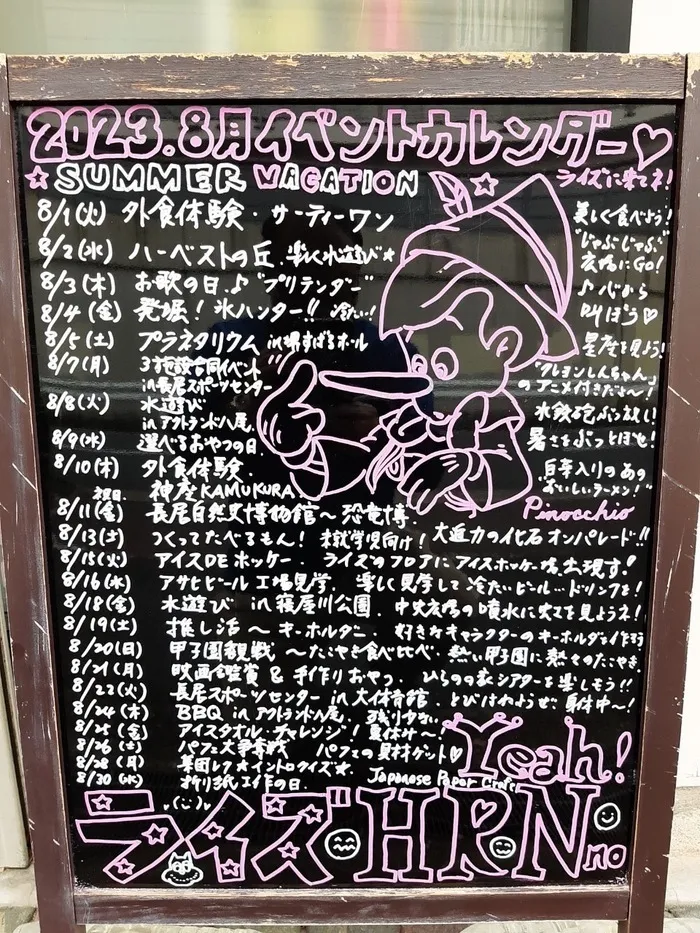 2023.8月イベントカレンダー♡
☆SUMMER VACATION☆ ライズに来てネ!
8/1(火) 外食体験・サーティーワン 美しく食べよう!
8/2(水) ハーベストの丘 楽しく水遊び★ "じゃぶじゃぶ"広場にGO!
8/3(木) お歌の日♪"プリテンダー" ♪心から叫ぼう♡
8/4(金) 発掘!氷ハンター!! 冷た〜い!
8/5(土) プラネタリウム in堺すばるホール 星座を見よう!
8/7(月) 3施設合同イベント in長居スポーツセンター 「クレヨンしんちゃん」のアニメ付きだよ〜!
8/8(火) 水遊び inアクトランド八尾 水鉄砲
8/9(水) 選べるおやつの日 暑さをぶっとばせ!
8/10(木) 外食体験 神座KAMUKURA 白菜入りのあのおいしいラーメン!
祝日
8/11(金) 長居自然史博物館〜恐竜博 大迫力の化石オンパレード!!
8/13(土) つくってたべるもん! 就学児向け!
8/15(火) アイスDEホッケー ライズのフロアにアイスホッケー場出現す!
8/16(水) アサヒビール工場見学 楽しく見学して冷たいビール…ドリンクを!
8/18(金) 水遊び in 寝屋川公園 中央広場の噴水に
8/19(土) 推し活〜キーホルダー 好きなキャラクターのキーホルダー作ろう
8/20(日) 甲子園観戦 〜たこやき食べ比べ 熱い甲子園に熱々のたこやき
8/21(月) 映画鑑賞&手作りおやつ シアターを楽しもう!!
8/22(火) 長居スポーツセンター in 大体育館 とびはねようぜ!
8/24(木) BBQ inアクトランド八尾
8/25(金) アイスタオルチャレンジ! 夏休み〜!
8/26(土) パフェ大争奪戦 パフェの具材ゲット♡
8/28(月) 集団レク★イントロクイズ★
8/30(水) 折り紙工作の日 Japanese Paper Craft
Pinocchio
Yeah!
ライズHRN no